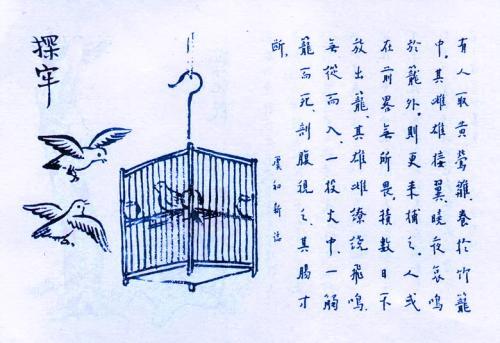 探牢
有人取黃鶯雛，養於竹籠
中。其雌雄接翼，曉夜哀鳴
於籠外，則更來哺之。人或
在前，畧無所畏。積數日不
放出籠。其雄雌繚繞飛鳴，
無從而入。一投火中，一觸
籠而死。剖腹視之，其腸寸
斷。
虞初新誌